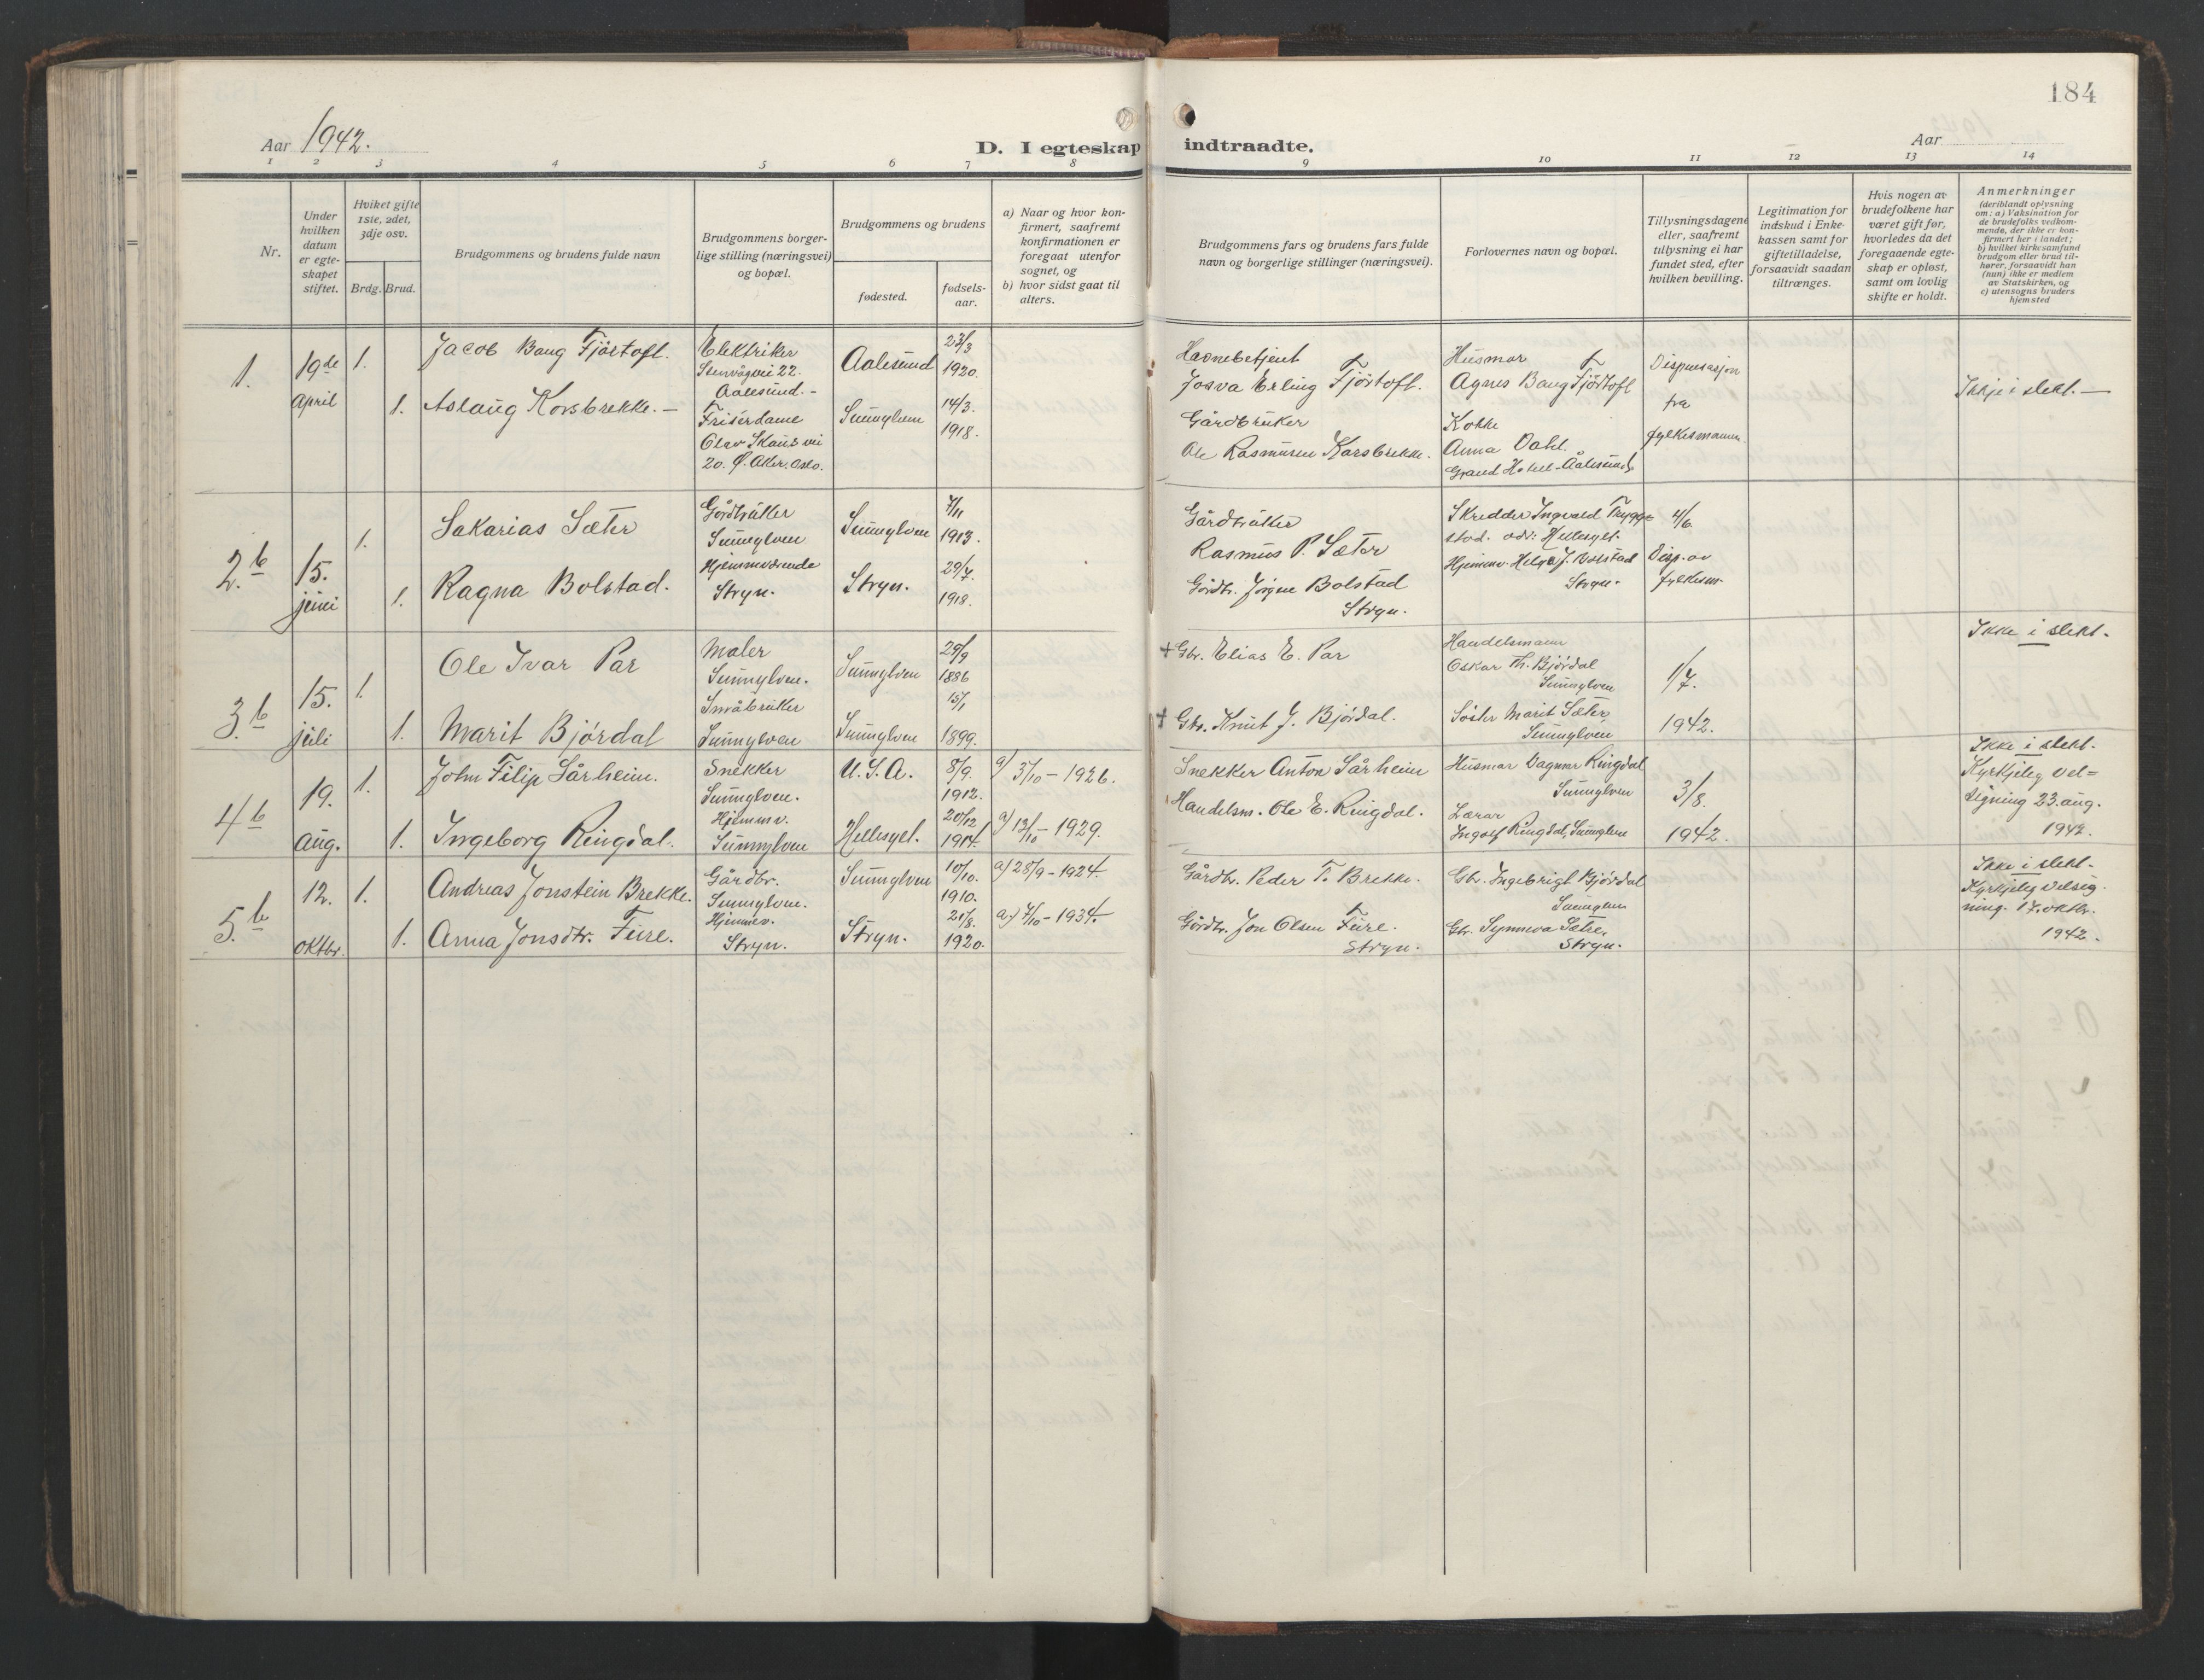 184
Aar 1942.
D. I egteskap indtraadte.
Aar
1 2 3 4 5 6 7 8 9 10 11 12 13 14
Nr.
Under
hvilken
datum
er egte-
skapet
stiftet.
Hvilket gifte
1ste, 2det,
3dje osv.
Brdg. Brud.
Brudgommens og brudens fulde navn
Brudgommens borger-
lige stilling (næringsvei)
og bopæl.
Brudgommens og brudens
fødested.
fødsels-
aar.
a) Naar og hvor kon-
firmert, saafremt
konfirmationen er
foregaat utenfor
sognet, og
b) hvor sidst gaat til
alters.
Brudgommens fars og brudens fars fulde
navn og borgerlige stillinger (næringsvei).
Forlovernes navn og bopæl.
Tillysningsdagene
eller, saafremt
tillysning ei har
fundet sted, efter
hvilken bevilling.
Legitimation for
indskud i Enke-
kassen samt for
giftetilladelse,
forsaavidt saadan
tiltrænges.
Hvis nogen av
brudefolkene har
været gift før,
hvorledes da det
foregaaende egte-
skap er opløst,
samt om lovlig
skifte er holdt.
Anmerkninger
(deriblandt oplysning
om: a) Vaksination for
de brudefolks vedkom-
mende, der ikke er kon-
firmert her i landet;
b) hvilket kirkesamfund
brudgom eller brud til-
hører, forsaavidt han
(hun) ikke er medlem
av Statskirken, og
c) utensogns bruders
hjemsted
1.
19de
April
1.
1.
Jacob Bang Fjørtoft.
Aslaug Korsbrekke. –
Elektriker
22.
Aalesund. –
Frisérdame
Olav Skaus vei
20. Ø. Aker. Oslo.
Aalesund
Sunnylven
23/3
1920.
14/3.
1918.
Havnebetjent
Josva Erling Fjørtoft.
Gårdbruker
Ole Rasmusen Korsbrekke.
Husmor
Agnes Bang Fjørtoft
Kokke
Anna Dahl.
Grand Hotell - Aalesund.
Dispensasjon
fra
fylkesmannen.
Ikkje i slekt. —
2. b
15.
juni
1.
1.
Sakarias Sæter
Ragna Bolstad.
Gårdbruker
Sunnylven
Hjemmeværende
Stryn.
Sunnylven
Stryn.
7/11
1913.
29/7.
1918.
Gårdbruker
Rasmus P. Sæter
Gårdbr. Jørgen Bolstad
Stryn.
Skredder Ingvald Trygge-
stad. adr: Hellesylt.
Hjemmv. Helga J. Bolstad
Stryn.
4/6.
Disp. av
fylkesm.
3. b
15.
juli
1.
1.
Ole Ivar Par
Marit Bjørdal
Maler
Sunnylven.
Småbruker
Sunnylven
Sunnylven
Sunnylven
29/9
1886
15/1
1899.
+ Gbr. Elias E. Par
+ Gbr. Knut J. Bjørdal.
Handelsmann
Oskar Th. Bjørdal
Sunnylven
Søster Marit Sæter,
Sunnylven
1/7.
1942.
Ikke i slekt.
4 b
19.
aug.
1.
1.
John Filip Sårheim.
Ingeborg Ringdal.
Snekker
Sunnylven.
Hjemmv.
Sunnylven
U. S. A.
Hellesylt.
8/9.
1912.
20/12
1914.
a) 3/10 – 1926.
a) 13/10 – 1929.
Snekker Anton Sårheim
Handelsm. Ole E. Ringdal.
Husmor Dagmar Ringdal
Sunnylven
Lærar
Ingolf Ringdal, Sunnylven
3/8.
1942.
Ikke i slekt.
Kyrkjeleg vel=
signing 23. aug.
1942.
5. b
12.
oktbr.
1.
1.
Andreas Jonstein Brekke.
Anna Jonsdtr. Fure.
Gårdbr.
Sunnylven.
Hjemmev.
Stryn.
Sunnylven
Stryn.
10/10.
1910.
21/8.
1920.
a) 28/9 – 1924.
a) 7/10 – 1934.
Gårdbr. Peder T. Brekke.
Gårdbr. Jon Olsen Fure.
Stryn.
Gbr. Ingebrigt Bjørdal
Sunnylven
Gbr. Synneva Sætre,
Stryn.
Ikke i slekt.
Kyrkjeleg velsig-
ning. 17. oktbr.
1942.